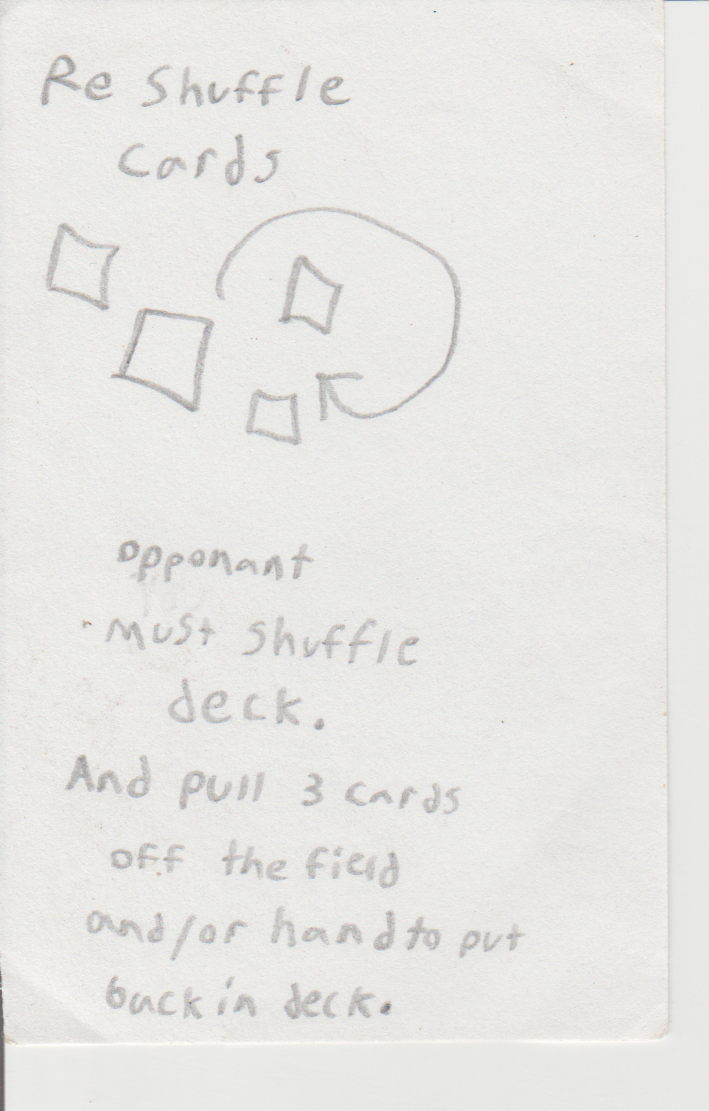 Re Shuffle
Cards
opponant
must shuffle
deck.
And pull 3 cards
off the field
and/or hand to put
back in deck.